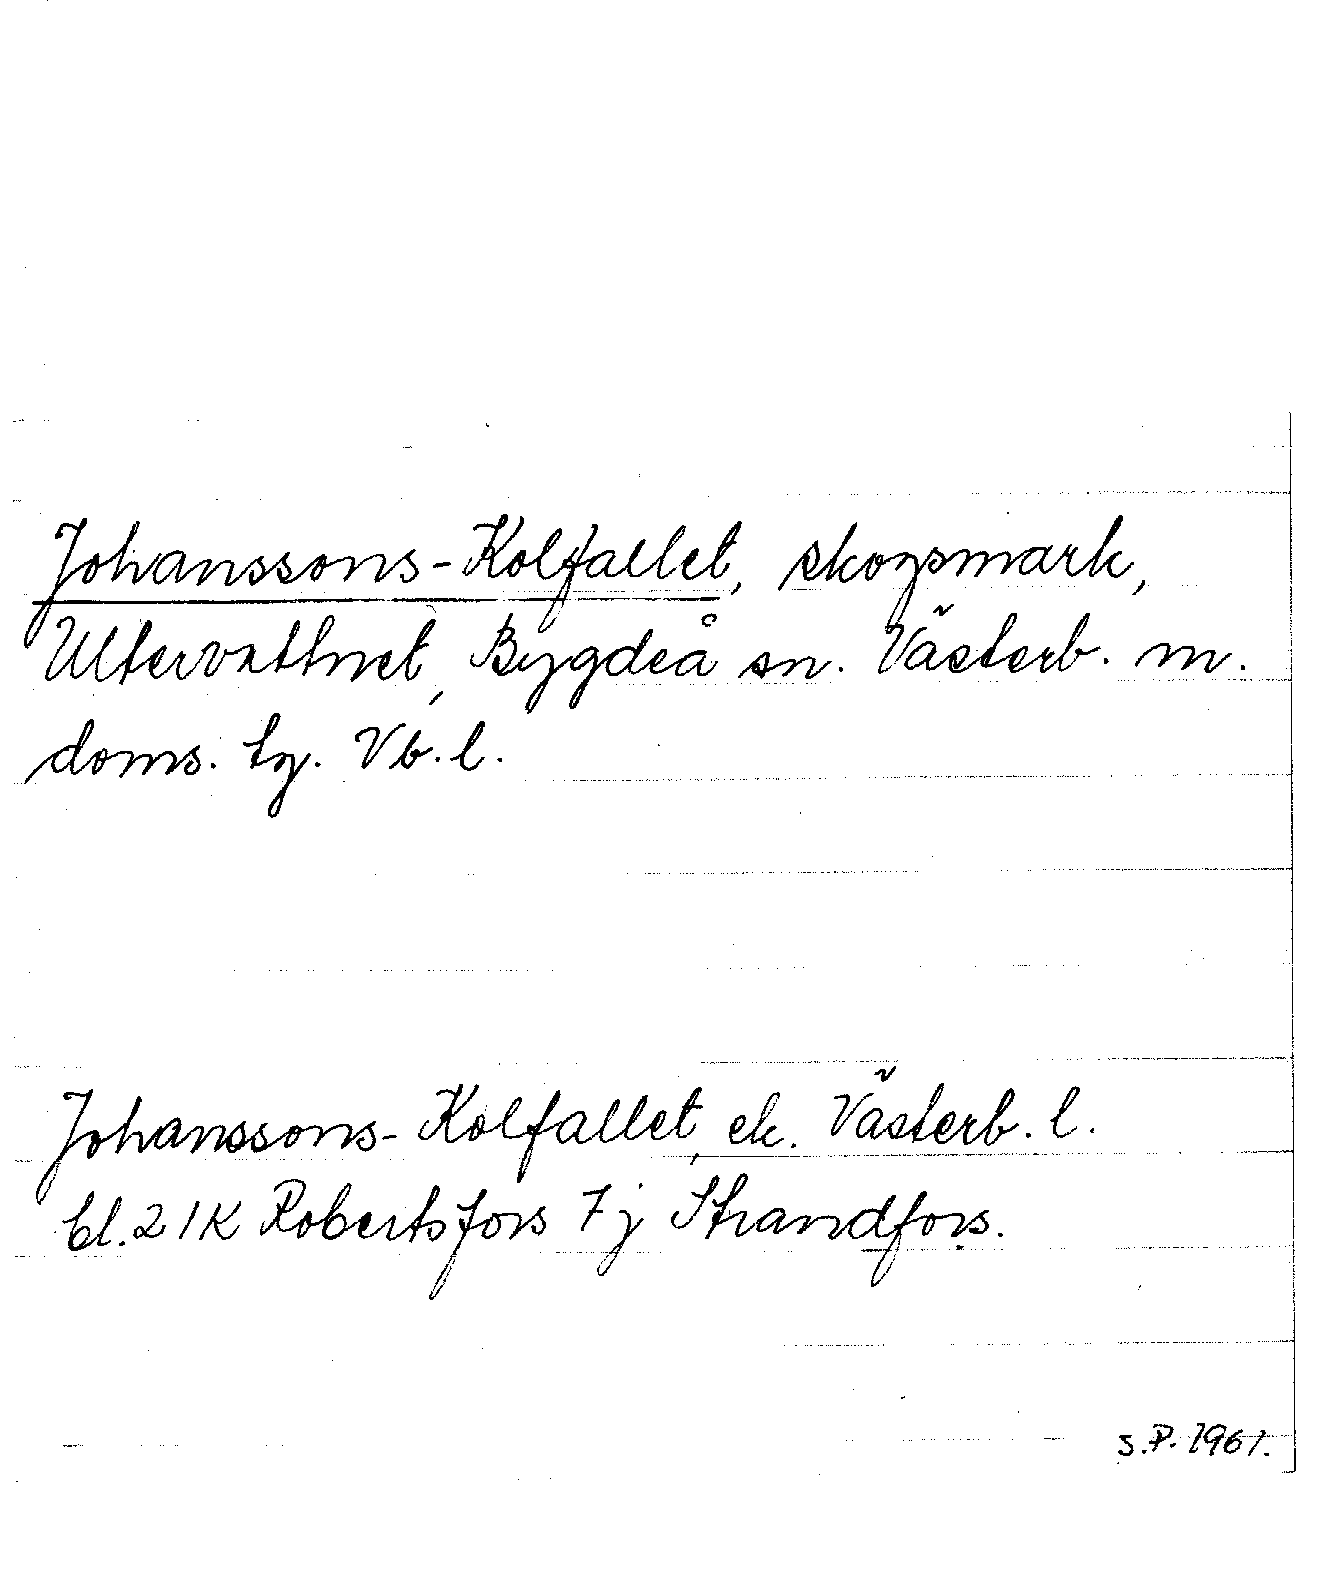 Johanssons-Kolfallet, skogsmark,
Ultervattnet, Bygdeå sn. Västerb. m.
doms. tg. Vb. l.
Johanssons-Kolfallet, ek. Västerb. l.
bl. 21K Robertsfors 7j Strandfors.
S.P. 1961.